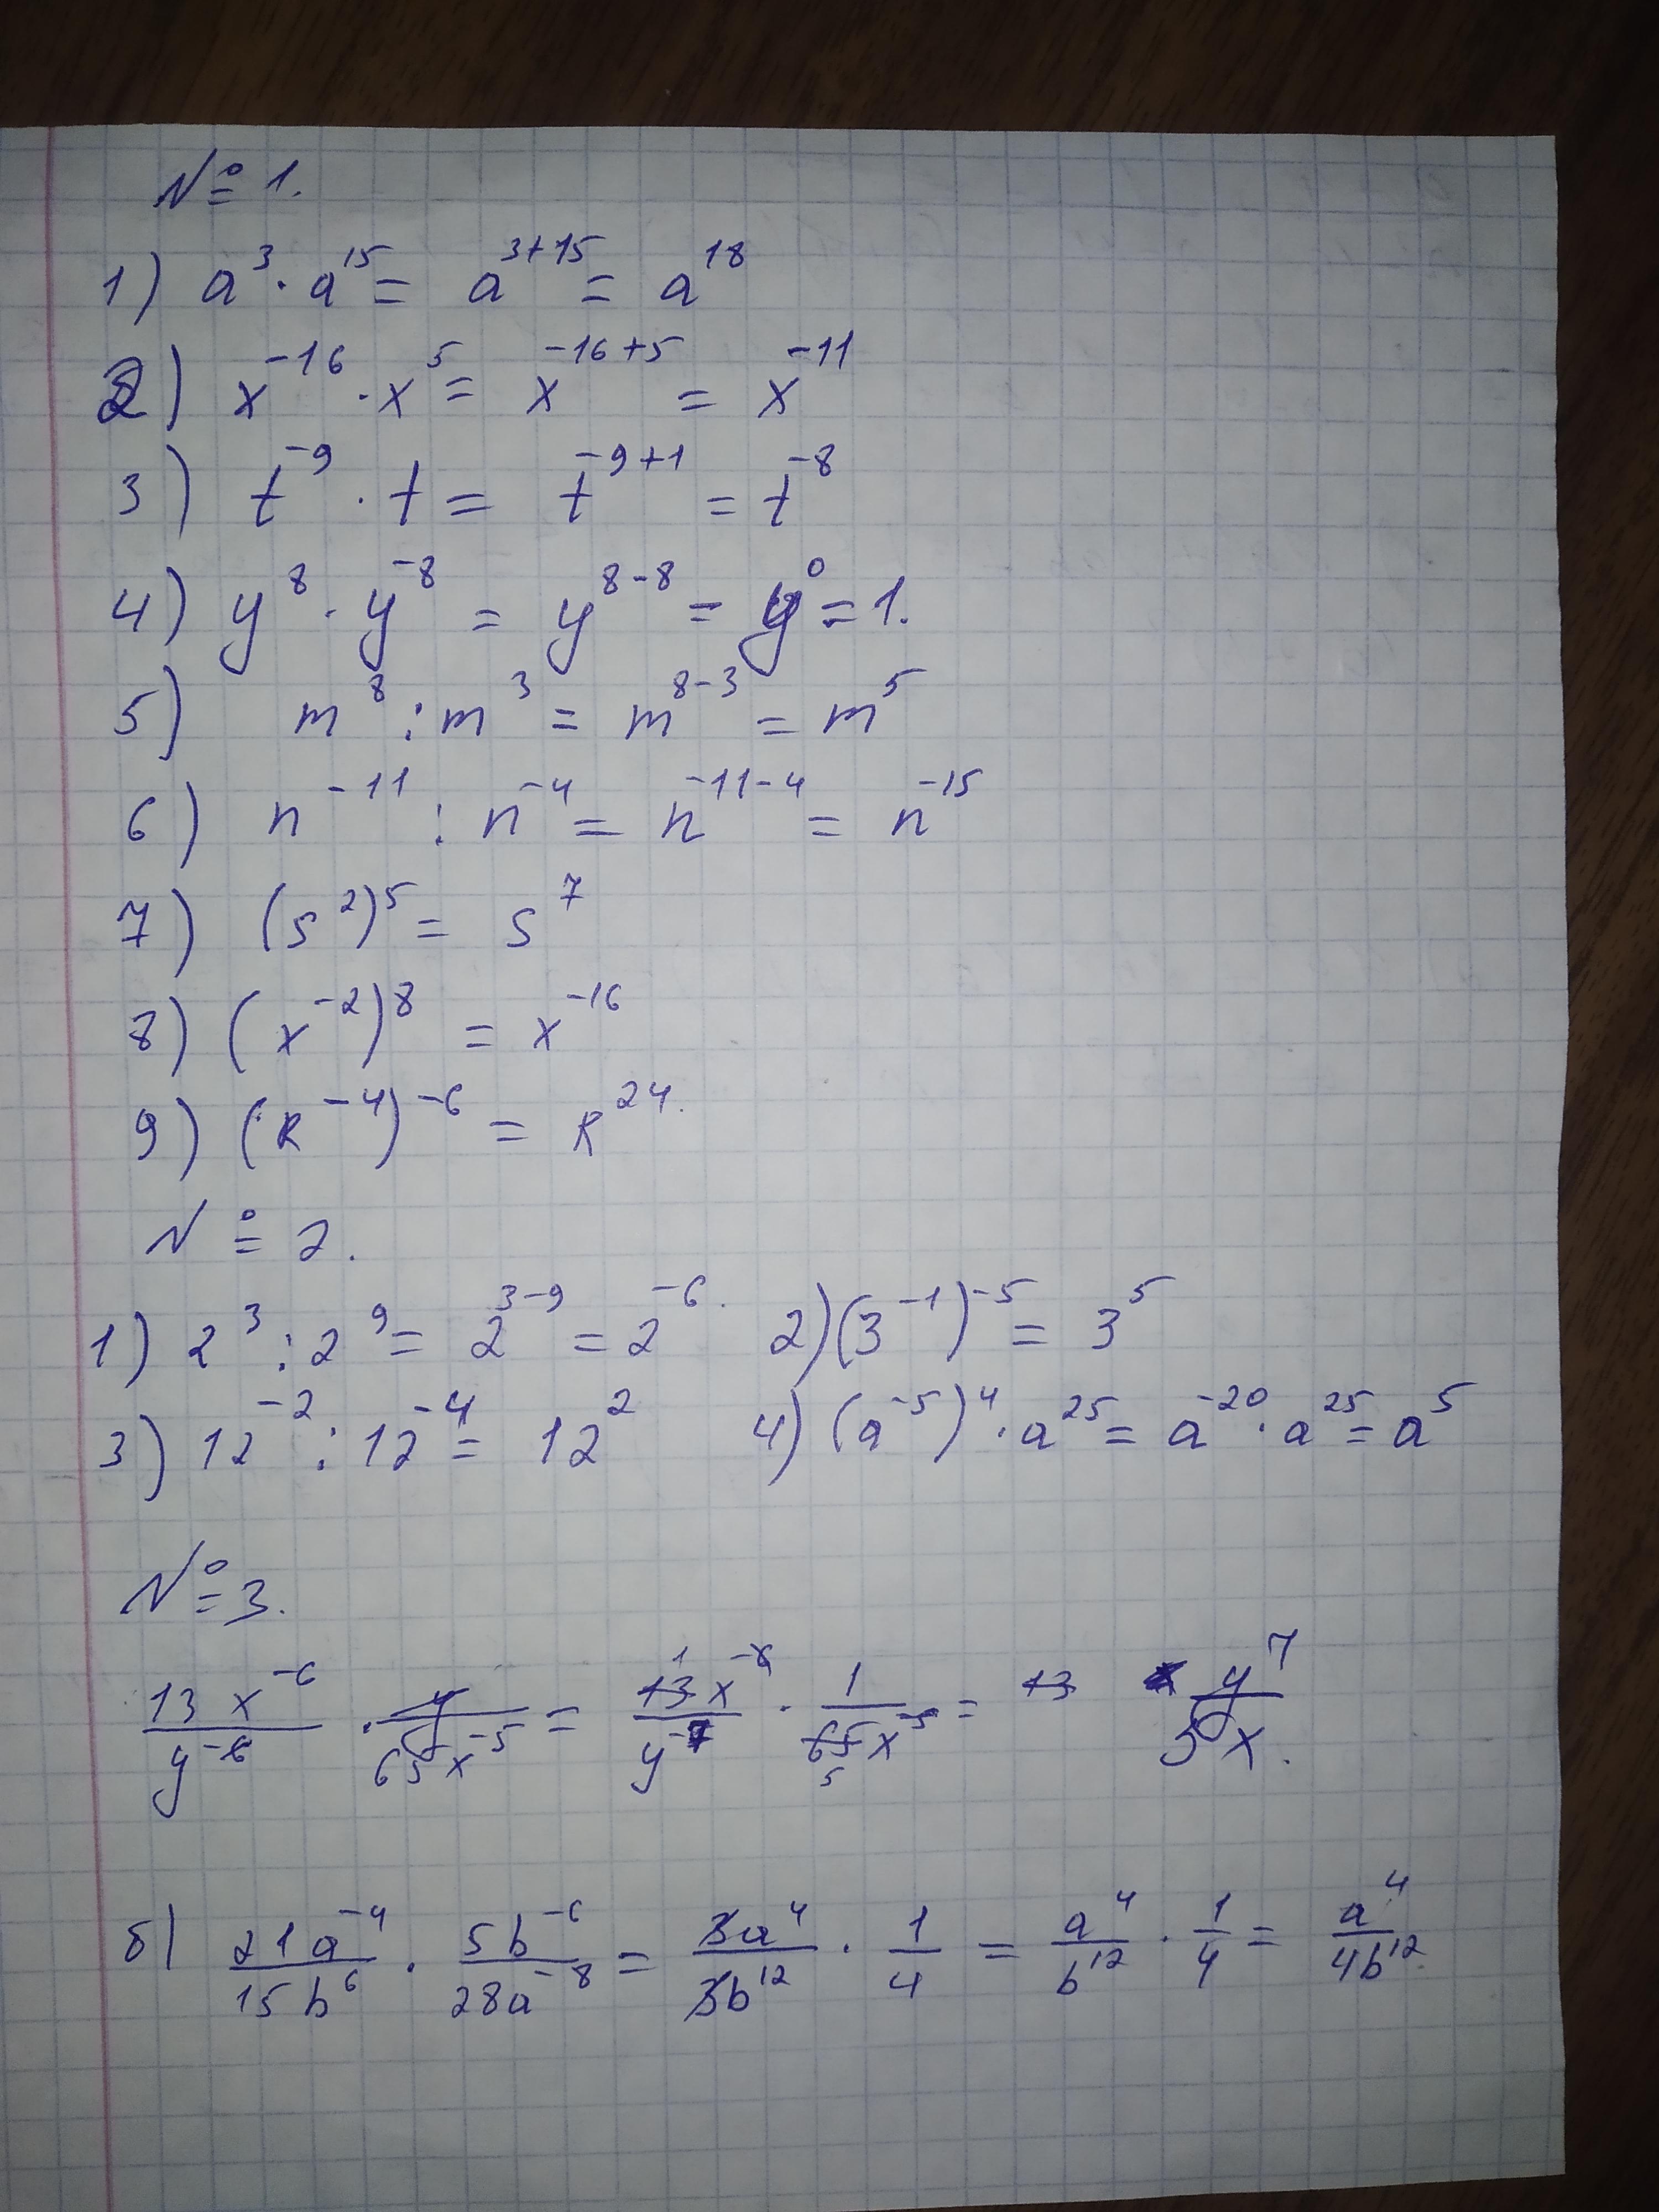 № 1.
1) a³ · a¹⁵ = a³⁺¹⁵ = a¹⁸
2) x⁻¹⁶ · x⁵ = x⁻¹⁶⁺⁵ = x⁻¹¹
3) t⁻⁹ · t = t⁻⁹⁺¹ = t⁻⁸
4) y⁸ · y⁻⁸ = y⁸⁻⁸ = y⁰ = 1.
5) m⁸ : m³ = m⁸⁻³ = m⁵
6) n⁻¹¹ : n⁻⁴ = n⁻¹¹⁻⁴ = n⁻¹⁵
7) (s²)⁵ = s⁷
8) (x⁻²)⁸ = x⁻¹⁶
9) (k⁻⁴)⁻⁶ = k²⁴.
№ 2.
1) 2³ : 2⁹ = 2³⁻⁹ = 2⁻⁶. 2) (3⁻¹)⁻⁵ = 3⁵
3) 12⁻² : 12⁻⁴ = 12² 4) (a⁻⁵)⁴ · a²⁵ = a⁻²⁰ · a²⁵ = a⁵
№ 3.
13x⁻⁶/y⁻⁶ · y/65x⁻⁵ = 13x⁻⁶/y⁻⁷ · 1/65x⁻⁵ = y⁷/5x.
б) 21a⁻⁴/15b⁶ · 5b⁻⁶/28a⁻⁸ = 3a⁴/3b¹² · 1/4 = a⁴/b¹² · 1/4 = a⁴/4b¹².